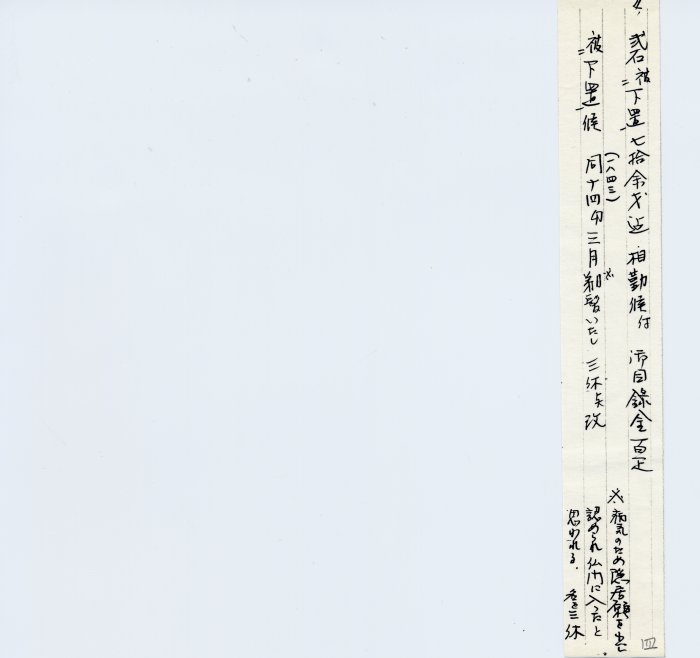 弐石被下置七拾余才迄相勤候付御目録金百疋
被下置候 同十四卯三月剃髪いたし三休と改
(一八四三)
※病気のため隠居願を出し
認められ仏門に入ったと
思われる。 名を三休
四